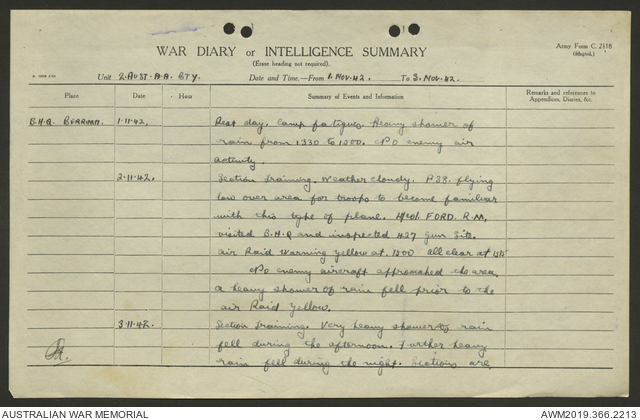 WAR DIARY or INTELLIGENCE SUMMARY
Army Form C. 2118
(Erase heading not required).
Unit 2. AUST. A.A. BTY. Date and Time.—From 1. NOV. 42. To 3. NOV. 42.
Place Date Hour Summary of Events and Information Remarks and references to Appendices, Diaries, &c.
B.H.Q. BERRIMA. 1.11.42. Rest day. Camp fatigues. Heavy shower of
rain from 1330 to 1500. No enemy air
activity.
2.11.42. Section training. Weather cloudy. P38. flying
low over area for troops to become familiar
with this type of plane. Lt/Col. FORD. R.M,
visited B.H.Q and inspected 427 Gun Site.
Air Raid Warning Yellow at. 1500 all clear at 1515
No enemy aircraft approached the area,
a heavy shower of rain fell prior to the
air Raid Yellow.
3.11.42. Section training. Very heavy shower of rain
fell during the afternoon. Further heavy
rain fell during the night. Sections are
AUSTRALIAN WAR MEMORIAL
AWM2019.366.2213